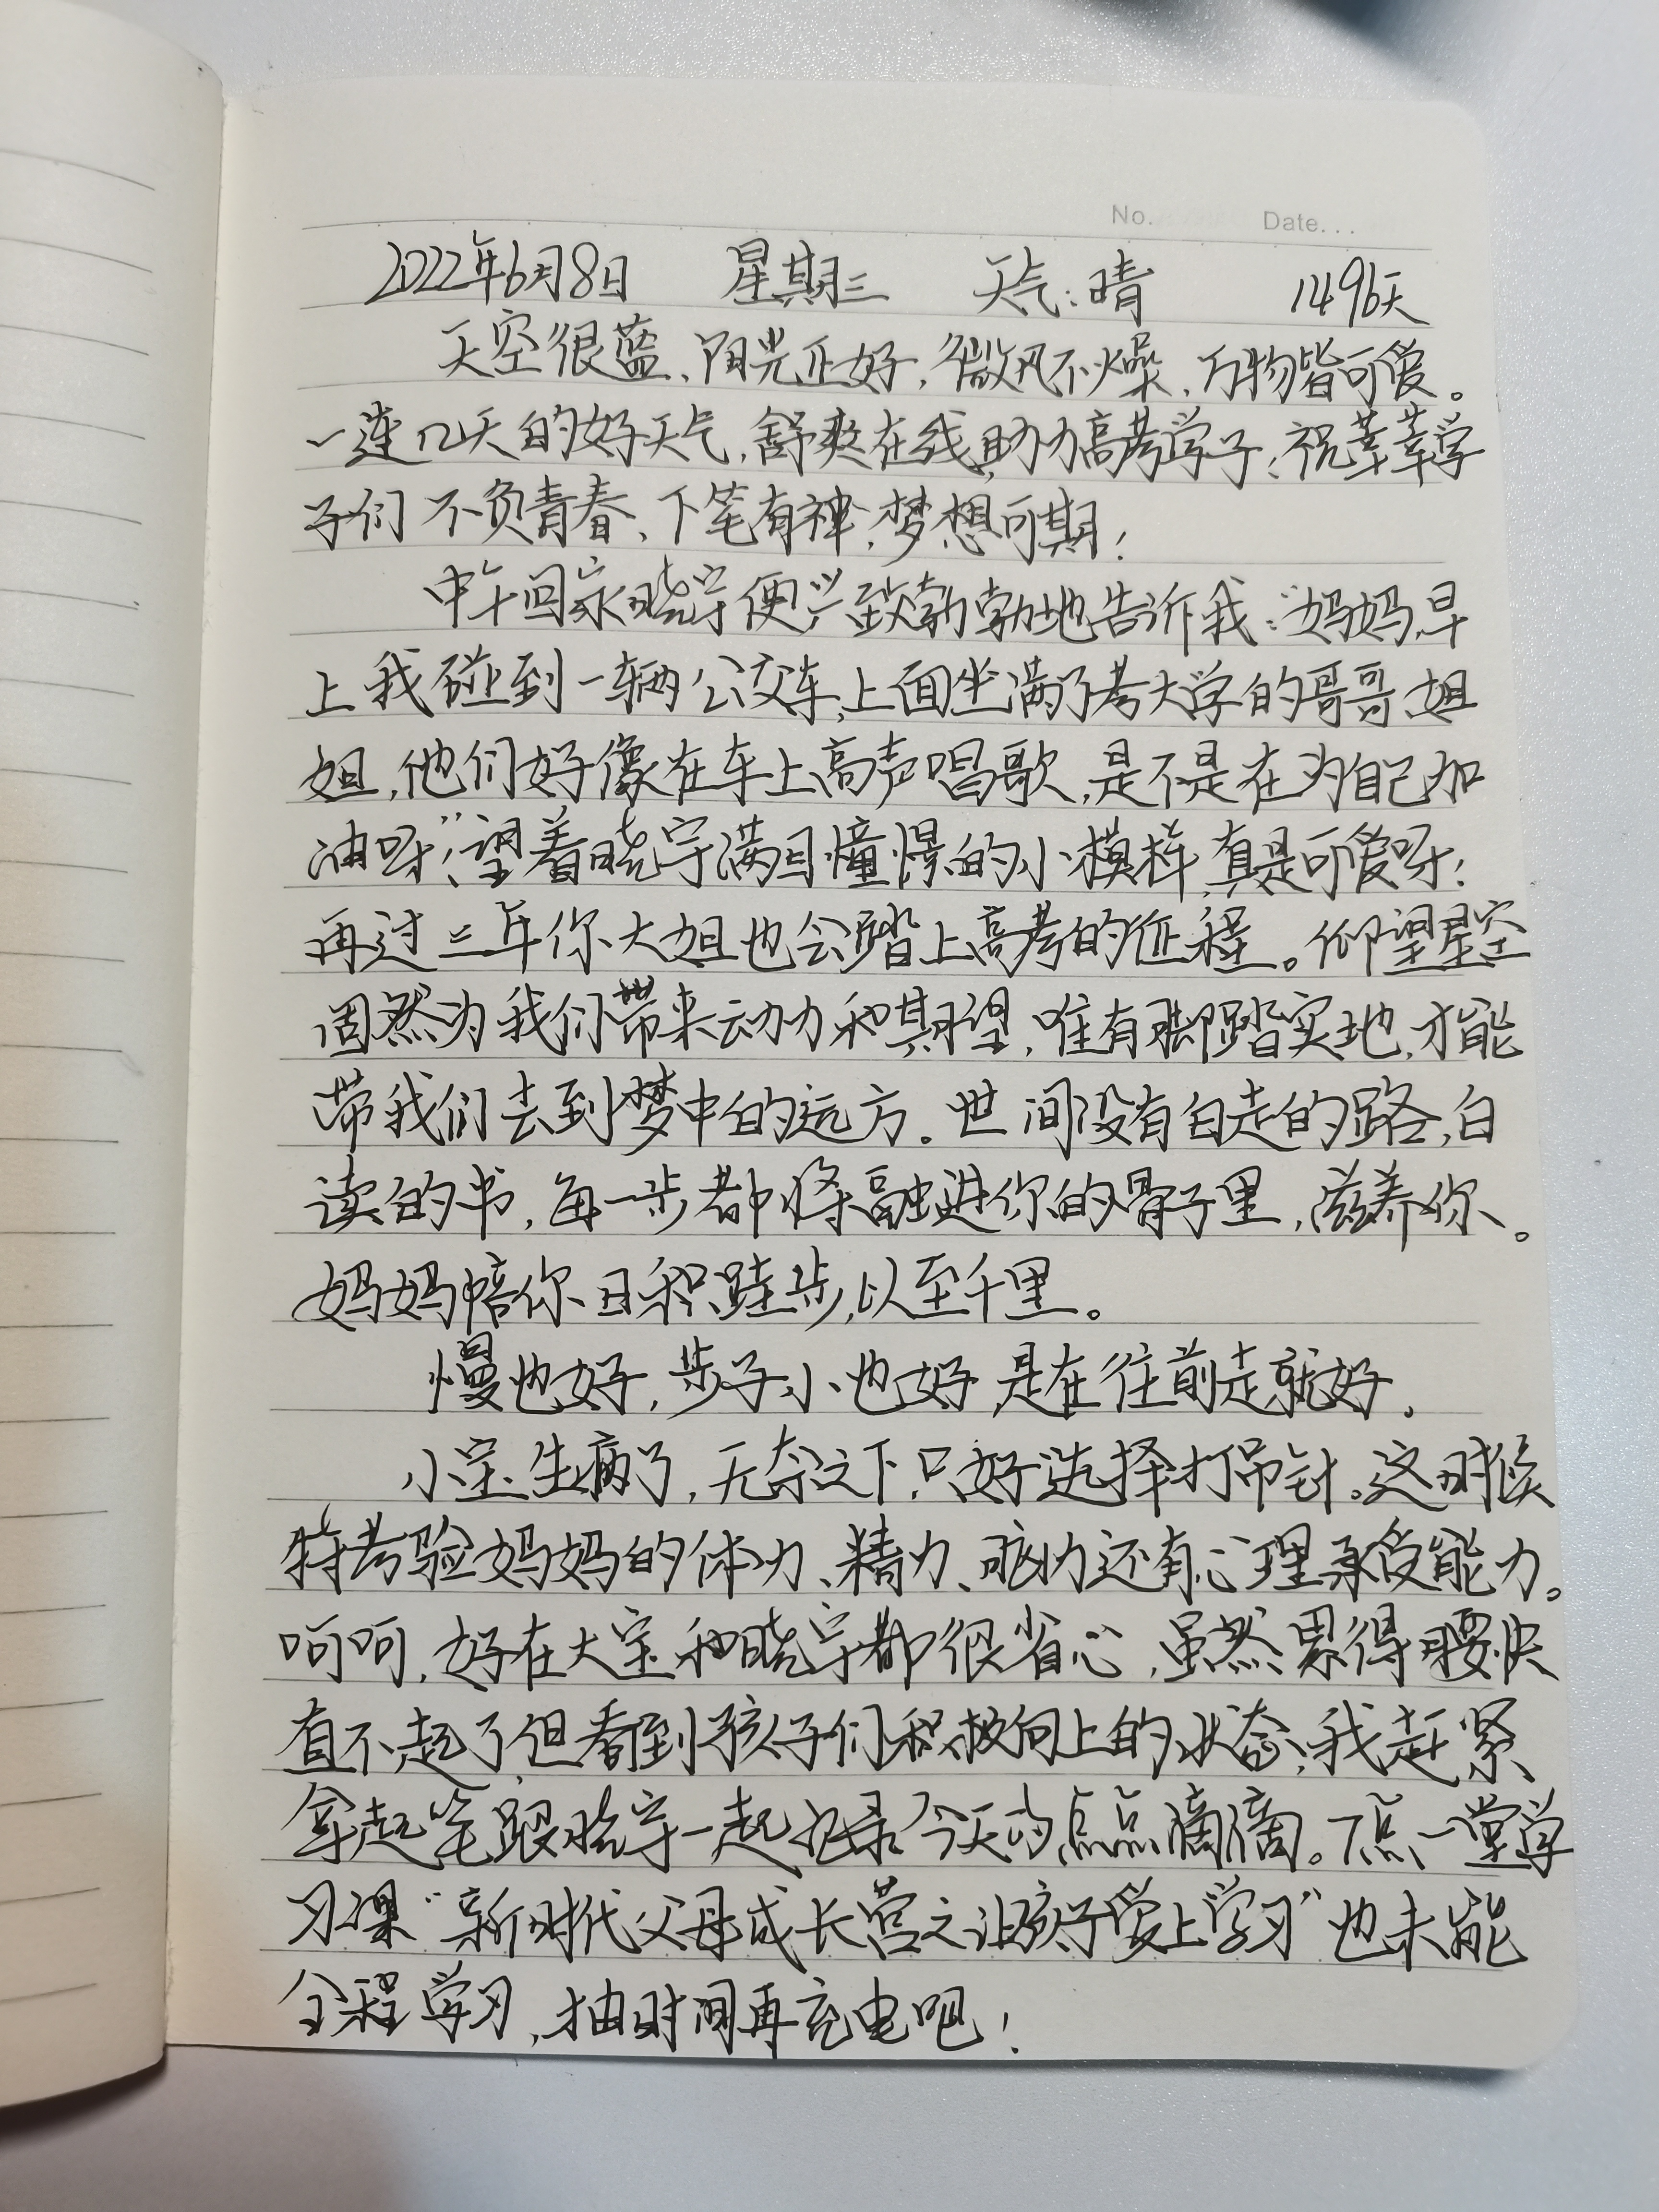 No. Date...
2022年6月8日 星期三 天气:晴 1496天
天空很蓝、阳光正好,微风不燥,万物皆可爱。
一连几天的好天气,舒爽在线,助力高考学子;祝莘莘学
子们不负青春、下笔有神,梦想可期!
中午回家晓宇便兴致勃勃地告诉我:“妈妈,早
上我碰到一辆公交车,上面坐满了考大学的哥哥、姐
姐,他们好像在车上高声唱歌,是不是在为自己加
油呀”;望着晓宇满目憧憬的小模样,真是可爱呀!
再过三年你大姐也会踏上高考的征程。仰望星空
固然为我们带来动力和期望,唯有脚踏实地,才能
带我们去到梦中的远方。世间没有白走的路,白
读的书,每一步都将融进你的骨子里,滋养你。
妈妈陪你日积跬步,以至千里。
慢也好,步子小也好,是在往前走就好。
小宝生病了,无奈之下,只好选择打吊针。这时候
特考验妈妈的体力、精力、脑力还有心理承受能力。
呵呵,好在大宝和晓宇都很省心,虽然累得腰快
直不起了,但看到孩子们积极向上的状态,我赶紧
拿起笔跟晓宇一起记录今天的点点滴滴。下点一堂学
习课“新时代父母成长营之让孩子爱上学习”也未能
全程学习,抽时间再充电吧!